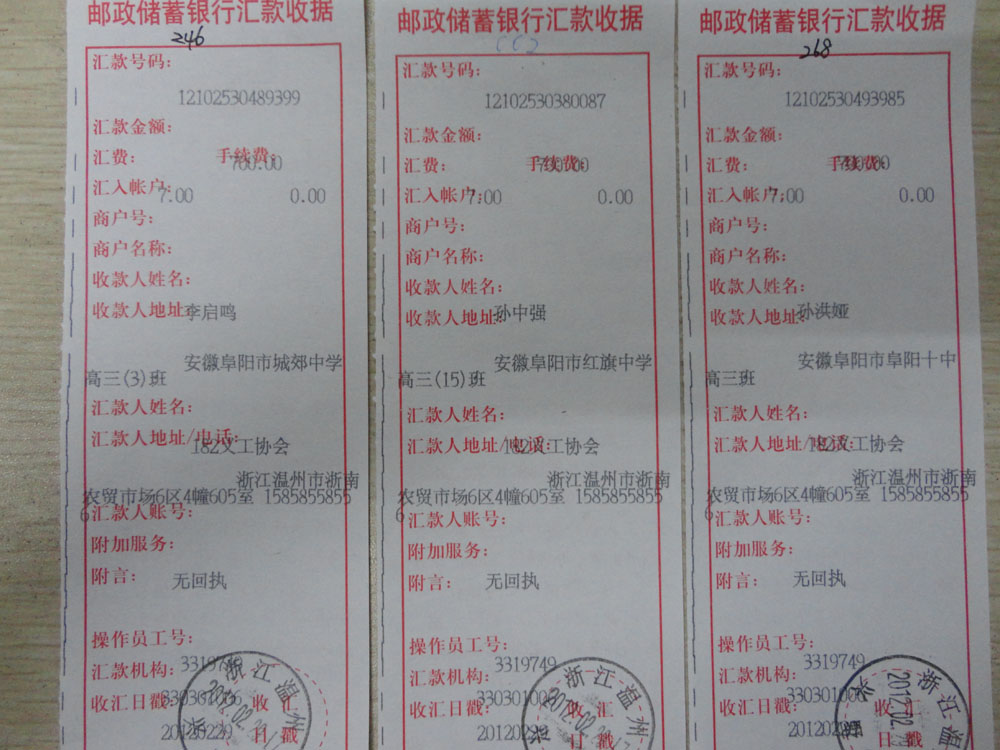 邮政储蓄银行汇款收据
246
汇款号码:
12102530489399
汇款金额:
汇费: 手续费:
700.00
汇入帐户:
7.00 0.00
商户号:
商户名称:
收款人姓名:
收款人地址:
李启鸣
安徽阜阳市城郊中学
高三(3)班
汇款人姓名:
汇款人地址/电话:
182义工协会
浙江温州市浙南
农贸市场6区4幢605室 1585855855
6
汇款人账号:
附加服务:
附言:
无回执
操作员工号:
汇款机构:
3319749
收汇日戳:
20120229
收汇
日戳
浙江温州
邮政储蓄银行汇款收据
汇款号码:
12102530380087
汇款金额:
汇费: 手续费:
700.00
汇入帐户:
7.00 0.00
商户号:
商户名称:
收款人姓名:
收款人地址:
孙中强
安徽阜阳市红旗中学
高三(15)班
汇款人姓名:
汇款人地址/电话:
182义工协会
浙江温州市浙南
农贸市场6区4幢605室 1585855855
6
汇款人账号:
附加服务:
附言:
无回执
操作员工号:
汇款机构:
3319749
收汇日戳:
收汇
日戳
浙江温州
邮政储蓄银行汇款收据
268
汇款号码:
12102530493985
汇款金额:
汇费: 手续费:
700.00
汇入帐户:
7.00 0.00
商户号:
商户名称:
收款人姓名:
收款人地址:
孙洪娅
安徽阜阳市阜阳十中
高三班
汇款人姓名:
汇款人地址/电话:
182义工协会
浙江温州市浙南
农贸市场6区4幢605室 1585855855
6
汇款人账号:
附加服务:
附言:
无回执
操作员工号:
汇款机构:
3319749
收汇日戳:
收汇
日戳
浙江温